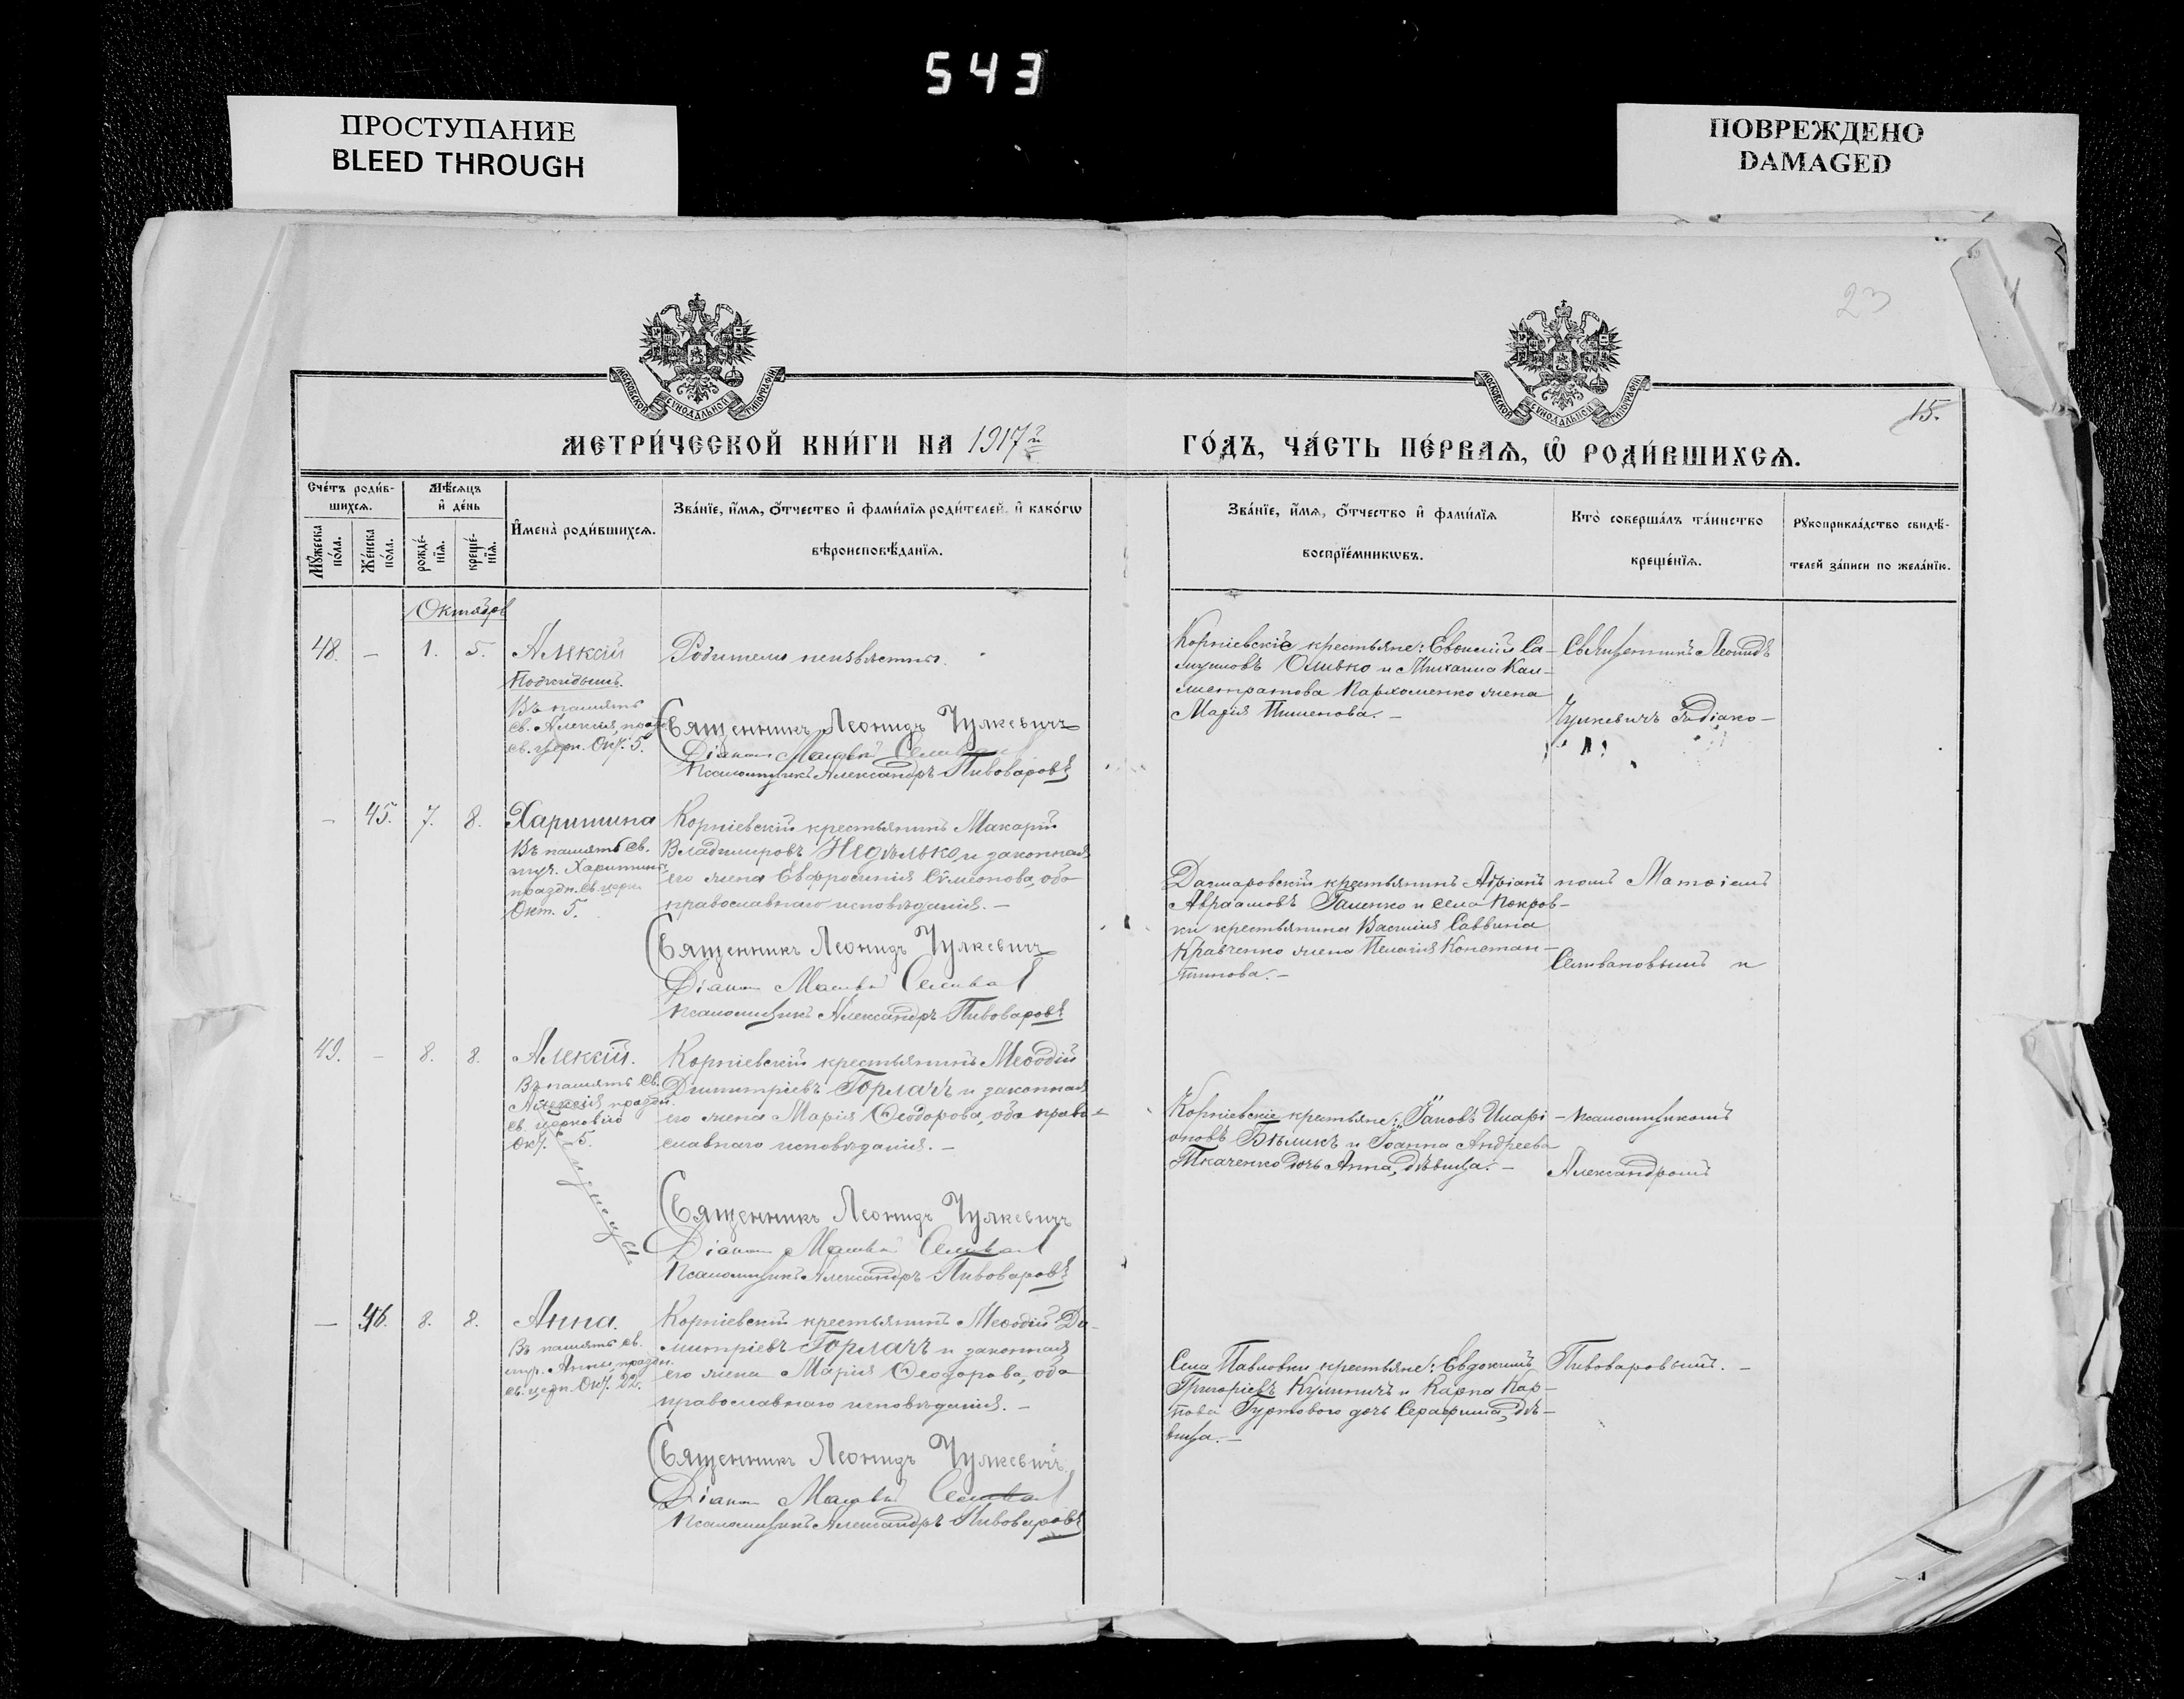 543
ПРОСТУПАНИЕ
BLEED THROUGH
ПОВРЕЖДЕНО
DAMAGED
23
15.
МОСКОВСКОЙ СѴНОДАЛЬНОЙ ТИПОГРАФІИ
МОСКОВСКОЙ СѴНОДАЛЬНОЙ ТИПОГРАФІИ
МЕТРИ́ЧЕСКОЙ КНИ́ГИ НА 1917й
ГО́ДЪ, ЧА́СТЬ ПЕ́РВАѦ, Ѽ РОДИ́ВШИХСѦ.
Сче́тъ роди́в-
шихсѧ.
Мꙋ́жеска по́ла.
Же́нска по́ла.
Мѣ́сѧцъ
и҆ де́нь
рожде́-
нїѧ.
креще́-
нїѧ.
И҆мена̀ роди́вшихсѧ.
Зва́нїе, и҆́мѧ, ѻ҆́тчество и҆ фами́лїѧ роди́телей, и҆ како́гѡ
вѣроисповѣ́данїѧ.
Зва́нїе, и҆́мѧ, ѻ҆́тчество и҆ фами́лїѧ
воспрїе́мникѡвъ.
Кто̀ соверша́лъ та́инство
креще́нїѧ.
Рꙋкоприкла́дство свидѣ́-
телей за́писи по жела́нїю.
Октябрь
48. — 1. 5. Алексій
Подкидышъ.
Въ память
св. Алексія, празд.
св. церк. Окт. 5.
Родители неизвѣстны.
Священникъ Леонидъ Чулкевичъ
Діаконъ Матвей
Псаломщикъ Александръ Пивоваровъ
Корніевскіе крестьяне: Евѳимій Са-
муиловъ Оливко и Михаила Кал-
листратова Пархоменко жена
Марія Пименова. —
Священникъ Леонидъ
Чулкевичъ съ діако-
— 45. 7. 8. Харитина
Въ память св.
муч. Харитины,
праздн. св. церк.
Окт. 5.
Корніевскій крестьянинъ Макарій
Владимировъ Недѣлько и законная
его жена Евфросинія Сѵмеонова, оба
православнаго исповѣданія. —
Священникъ Леонидъ Чулкевичъ
Діаконъ Матвей
Псаломщикъ Александръ Пивоваровъ
крестьянинъ Адріанъ
Авраамовъ Галенко и села Покров-
ки крестьянина Василія Саввина
Кравченко жена Пелагія Констан-
тинова. —
номъ Матѳіемъ
Селивановымъ и
49. — 8. 8. Алексій.
Въ память св.
Алексія праздн.
св. церковію
Окт. 5.
Близнецы
Корніевскій крестьянинъ Меѳодій
Димитріевъ Горлачъ и законная
его жена Марія Ѳеодорова, оба право-
славнаго исповѣданія. —
Священникъ Леонидъ Чулкевичъ
Діаконъ Матвей
Псаломщикъ Александръ Пивоваровъ
Корніевскіе крестьяне: Іаковъ Иларі-
оновъ Бѣликъ и Іоанна Андреева
Ткаченко дочь Анна, дѣвица. —
— псаломщикомъ
Александромъ
— 46. 8. 8. Анна.
Въ память св.
мц. Анны, праздн.
св. церк. Окт. 22.
Корніевскій крестьянинъ Меѳодій Ди-
митріевъ Горлачъ и законная
его жена Марія Ѳеодорова, оба
православнаго исповѣданія. —
Священникъ Леонидъ Чулкевичъ
Діаконъ Матвей
Псаломщикъ Александръ Пивоваровъ
Села Павловки крестьяне: Евдокимъ
Григоріевъ Кулиничъ и Карпа Кар-
пова Гуртового дочь Серафима, дѣ-
вица. —
Пивоваровымъ. —